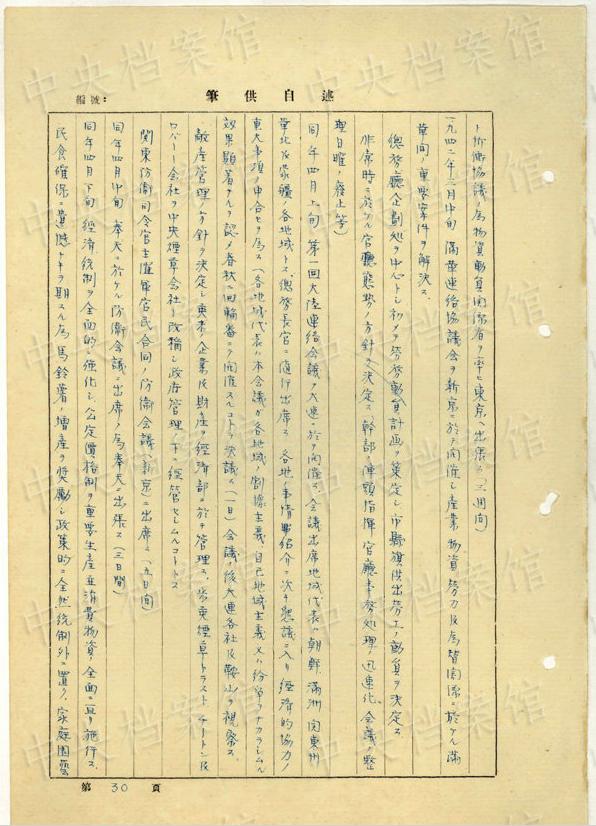 編號：
述自供筆
ト折衝協議ノ為物資動員関係者ヲ率ヒ東京ヘ出張ス（三週间）
一九四二年三月中旬 滿華連絡協議会ヲ新京ニ於テ開催シ産業物資労力及為替関係ニ於ケル滿
華间ノ重要案件ヲ解決ス
總務廳企劃処ヲ中心トシ初メテ労務動員計画ヲ策定シ市縣旗供出労工ノ動員ヲ決定ス
非常時ニ於ケル官廳態勢ノ方針ヲ決定ス（幹部ノ陣頭指揮 官廳事務処理ノ迅速化 会議ノ整
理日曜ノ廢止等）
同年四月上旬 第一回大陸連絡会議ヲ大連ニ於テ開催ス 会議出席地域代表ハ朝鮮 滿洲 関東州
華北及蒙疆ノ各地域トス 總務長官ニ随行出席ス 各地ノ事情紹介ニ次キ懇議ニ入リ経済的協力ノ
重大事項ノ申合セヲ為ス（各地域代表ハ本会議ガ各地域ノ割據主義 自己地域主義 ナカラシムル
効果顕著ナルヲ認メ春秋二回輪番ニテ開催スルコトヲ決議ス）（一日）会議ノ後大連各社及鞍山ヲ視察ス
敵産管理ノ方針ヲ決定シ 企業及財産ヲ経済部ニ於テ管理ス 煙草トラスト チートン及
ロパート会社ヲ中央煙草会社ト改稱シ政府管理ノ下ニ経営セシムルコトトス
関東防衛司令官主催軍官民合同ノ防衛会議（新京）ニ出席ス（五日间）
同年四月中旬 奉天ニ於ケル防衛会議ニ出席ノ為奉天ヘ出張ス（三日间）
同年四月下旬 経済統制ヲ全面的ニ強化シ公定價格制ヲ重要生産並消費物資ノ全面ニ亘リ施行ス
民食確保ニ遺憾ナキヲ期スル為馬鈴薯ノ増産ヲ奨勵シ政策的ニ全然統制外ニ置ク 家庭園藝
第 30 頁
中央档案馆